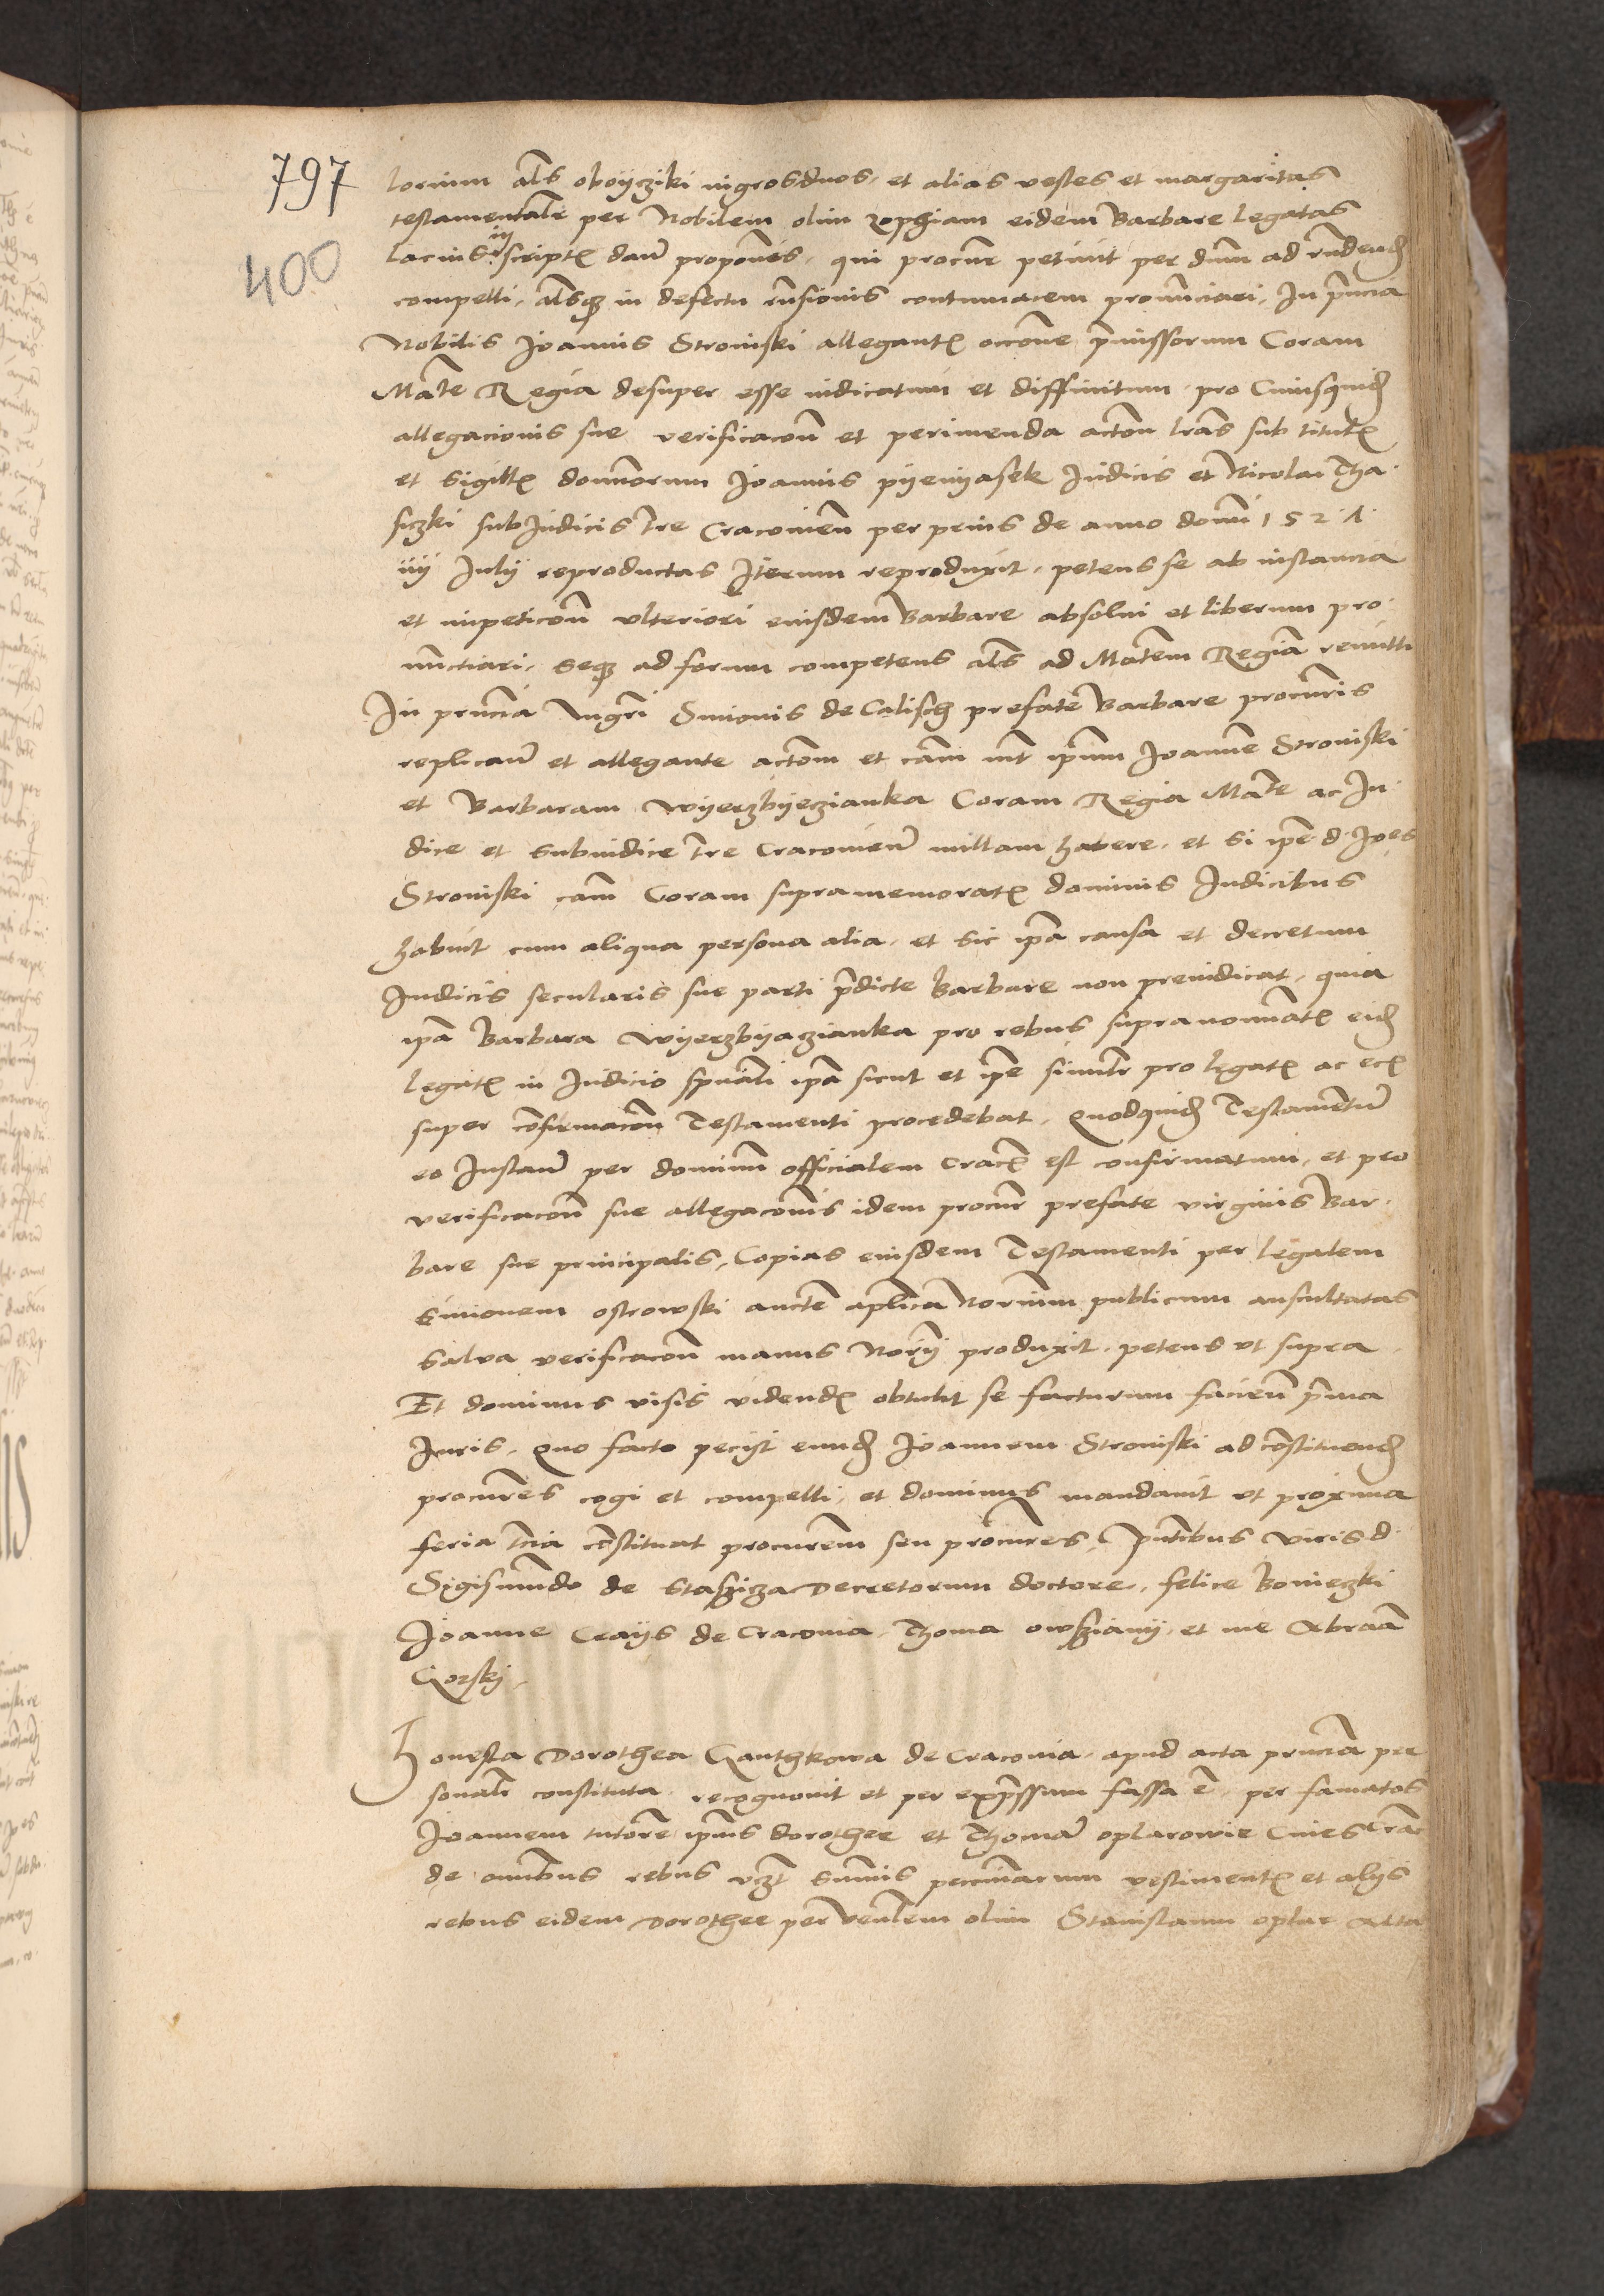 797
400
lorium als oboycziki nigros duos, et alias vestes et margaritas
testamentalr per Nobilem olim zophiam eidem Barbare legatas
lacius in scriptis dan proponens, qui procur petiuit per dnm ad rndend
compelli, alsq in defectu rnsionis contumacem pronunciari, In pncia
Nobilis Joannis Stroniski allegantis occone pmissorum Coram
Mate Regia desuper esse iudicatum et diffinitum, pro Cuiusquid
allegacionis sue verificacon et perimenda acton lras sub titulis
et sigillis dominorum Joannis pyenyasek Judicis et Nicolai Tha
siczki subJudicis tre Cracouien per prius de anno domi 1521
iiij July reproductas Iterum reproduxit, petens se ab instancia
et impeticon vlteriori eiusdem Barbare absolui et liberum pro
nunctiari, seq ad forum competens als ad Matem Regia remitti
In pncia Mgri Simonis de Calisch prefate Barbare procuris
replican et allegante actom et cam int ipsum Joanne Stroniski
et Barbaram Wyerzbyeczianka Coram Regia Mate ac Ju
dice et subiudice tre Cracouien nullam habere, et si ipe d Joes
Stroniski cam Coram supramemoratis dominis Judicibus
habuit cum aliqua persona alia, et sic ipa causa et decretum
Judicis secularis sue parti pdicte Barbare non preiudicat, quia
ipa Barbara Wyerzbyaczianka pro rebus supranominatis eid
legatis in Judicio spuali ipa sicut et ipe similr pro legatis ac ecis
super confirmacon Testamenti procedebat, Quodquid Testamentu
eo Instan per dominum officialem Crac est confirmatum, et pro
verificacon sue allegaconis idem procur prefate virginis Bar
bare sue principalis, Copias eiusdem Testamenti per legalem
Simonem ostrowski aucte aplica Norium publicum auscultatas
salua verificacon manus Norij produxit, petens vt supra
Et dominus visis videndis obtulit se facturum facien pma
Iuris, Quo facto pecijt eund Joannem Stroniski ad constituend
procures cogi et compelli, et dominus mandauit vt proxima
feria tcia constituat procurem seu procures, Pntibus viris d
Sigismundo de Stazicza Decretorum doctore, felice Bonieczki
Joanne Crays de Cracouia, Thoma owsziany, et me Abraa
Gorskj
Honesta Dorothea Ganthkowa de Cracouia, apud acta pncia per
sonalr constituta recognouit et per expressum fassa e, per famatos
Joannem tutore ipius dorothee et Thoma oplarowie Ciues Crac
de omnibus rebus vzt summis pecuniarum vestimentis et alijs
rebus eidem Dorothee per venlem olim Stanislaum oplar Alta